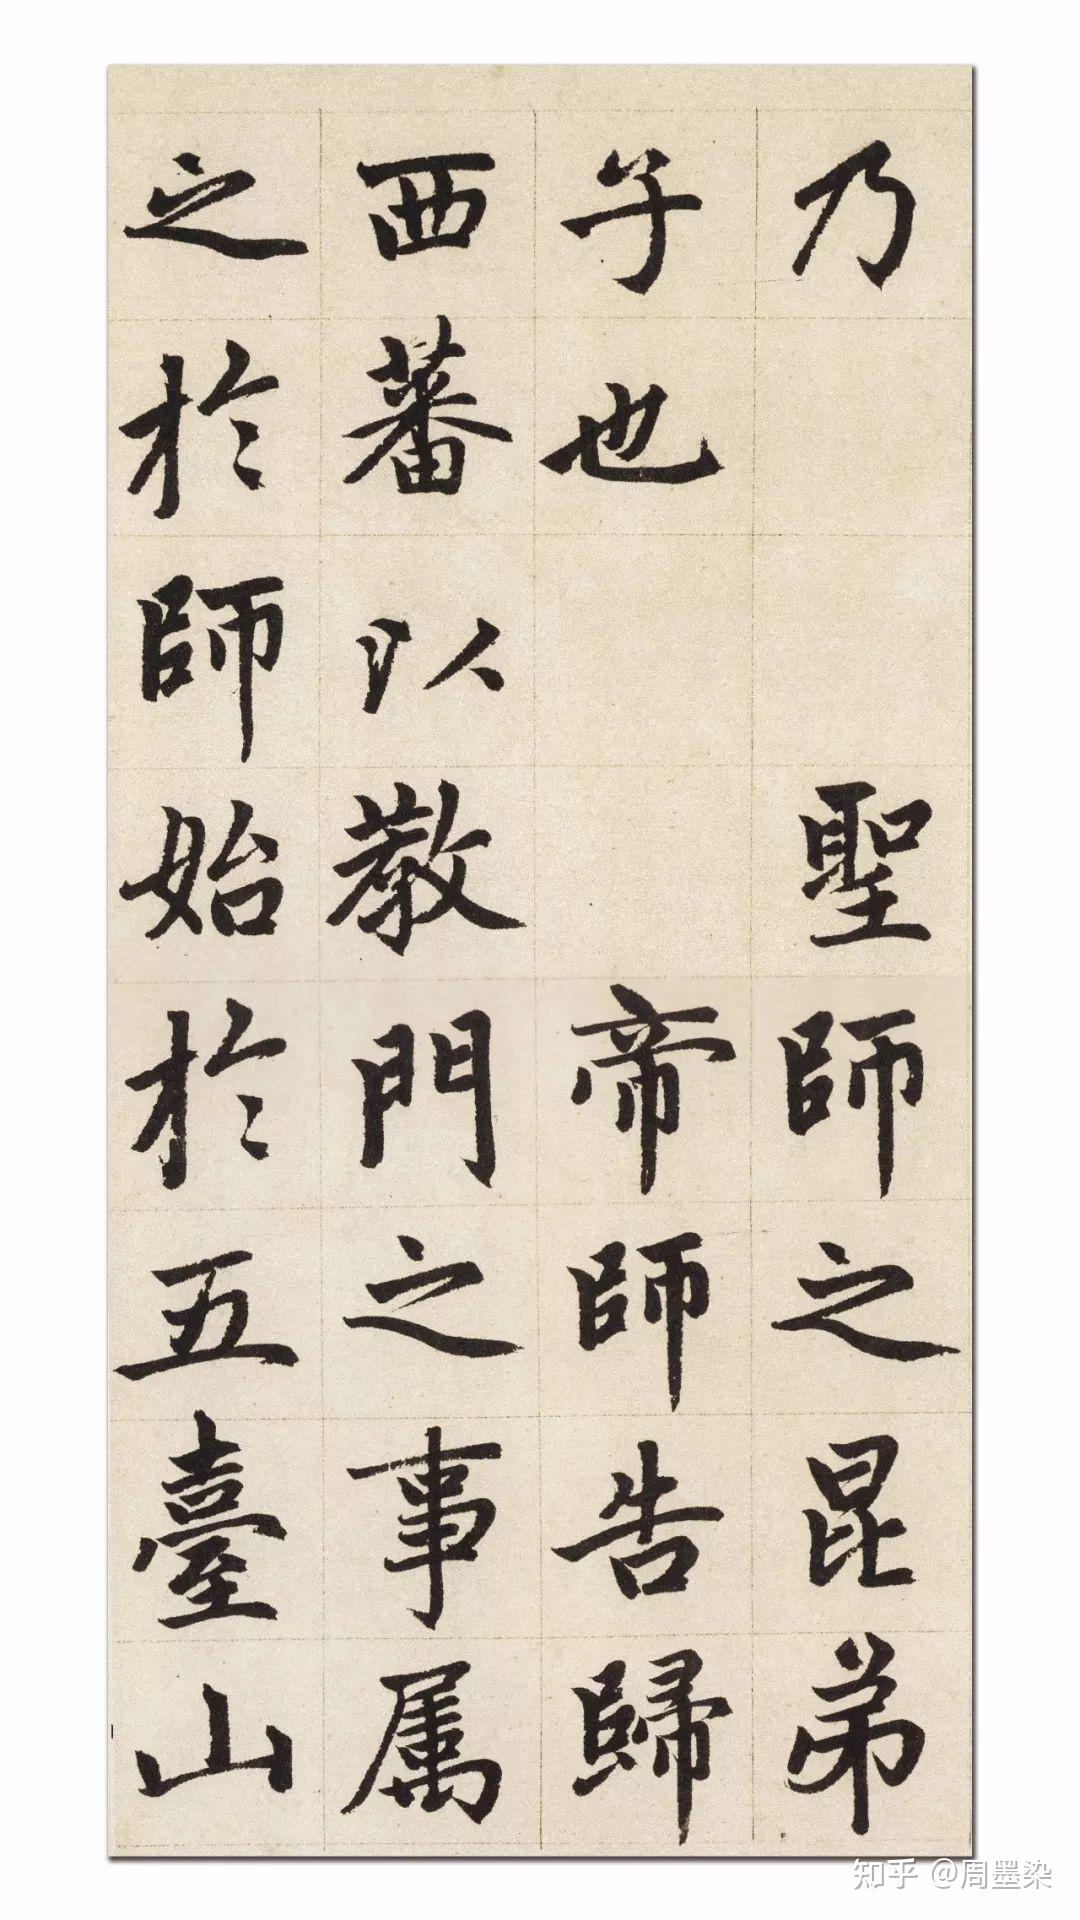 乃　　聖師之昆弟
子也　　帝師告歸
西蕃以教門之事属
之於師始於五臺山
知乎 @周墨染